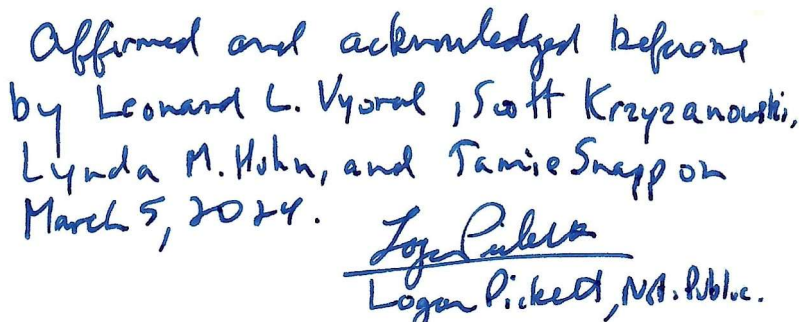 Affirmed and acknowledged before me
by Leonard L. Vyoral, Scott Krzyzanowski,
Lynda M. Huhn, and Tamie Snapp on
March 5, 2024.
Logan Pickett
Logan Pickett, Not. Public.